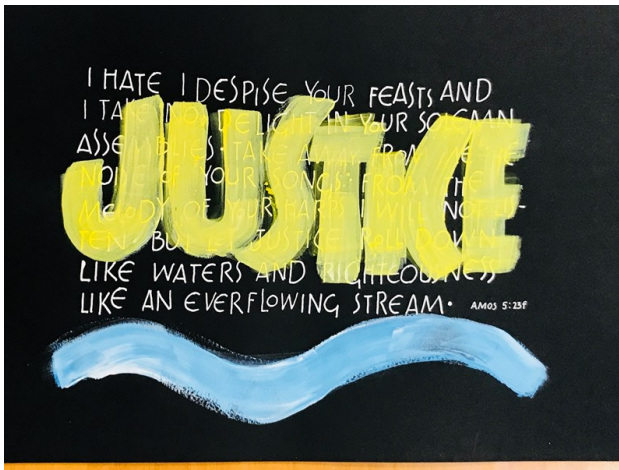 I HATE I DESPISE YOUR FEASTS AND
I TAKE NO DELIGHT IN YOUR SOLEMN
ASSEMBLIES TAKE AWAY FROM ME THE
NOISE OF YOUR SONGS FROM THE
MELODY OF YOUR HARPS I WILL NOT LIS-
TEN · BUT LET JUSTICE ROLL DOWN
LIKE WATERS AND RIGHTEOUSNESS
LIKE AN EVERFLOWING STREAM·
AMOS 5:23f
JUSTICE